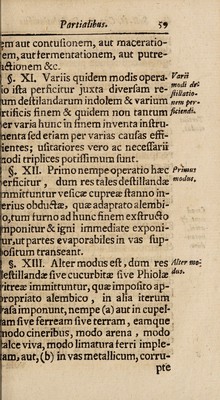 Partialibus. 59
em aut contusionem, aut maceratio-
em, aut fermentationem, aut putre-
actionem &c.
§. XI. Variis quidem modis opera-
io ista perficitur juxta diversam re-
um destilandarum indolem & varium
rtificis finem & quidem non tantum
er varia hunc in finem inventa instru-
nenta sed etiam per varias causas effi-
ientes; usitatiores vero ac necessarii
nodi triplices potissimum sunt.
Varii
modi de-
stillatio-
nem per-
ficiendi.
§. XII. Primo nempe operatio hæc
erficitur, dum res tales destillandæ
mmittuntur vesicæ cupreæ stanno in-
erius obductæ, quæ adaptato alembi-
o, tum furno ad hunc finem exstructo
mponitur & igni immediate exponi-
ur, ut partes evaporabiles in vas sup-
ositum transeant.
Primus
modus.
§. XIII. Alter modus est, dum res
estillandæ sive cucurbitæ sive Phiolæ
itreæ immittuntur, quæ imposito ap-
ropriato alembico, in alia iterum
asa imponunt, nempe (a) aut in cupel-
am sive ferream sive terream, eamque
nodo cineribus, modo arena, modo
alce viva, modo limatura ferri imple-
am, aut, (b) in vas metallicum, corru-
pte
Alter mo-
dus.